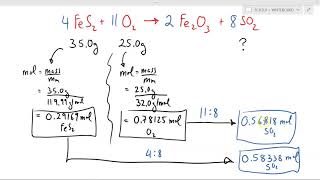 4 FeS2 + 11 O2 → 2 Fe2O3 + 8 SO2
35.0g 25.0g ?
mol = mass/mm
= 35.0g/119.99 g/mol
= 0.29169 mol
FeS2
mol = mass/mm
= 25.0g/32.0 g/mol
= 0.78125 mol
O2
11:8
0.56818 mol
SO2
4:8
0.58338 mol
SO2